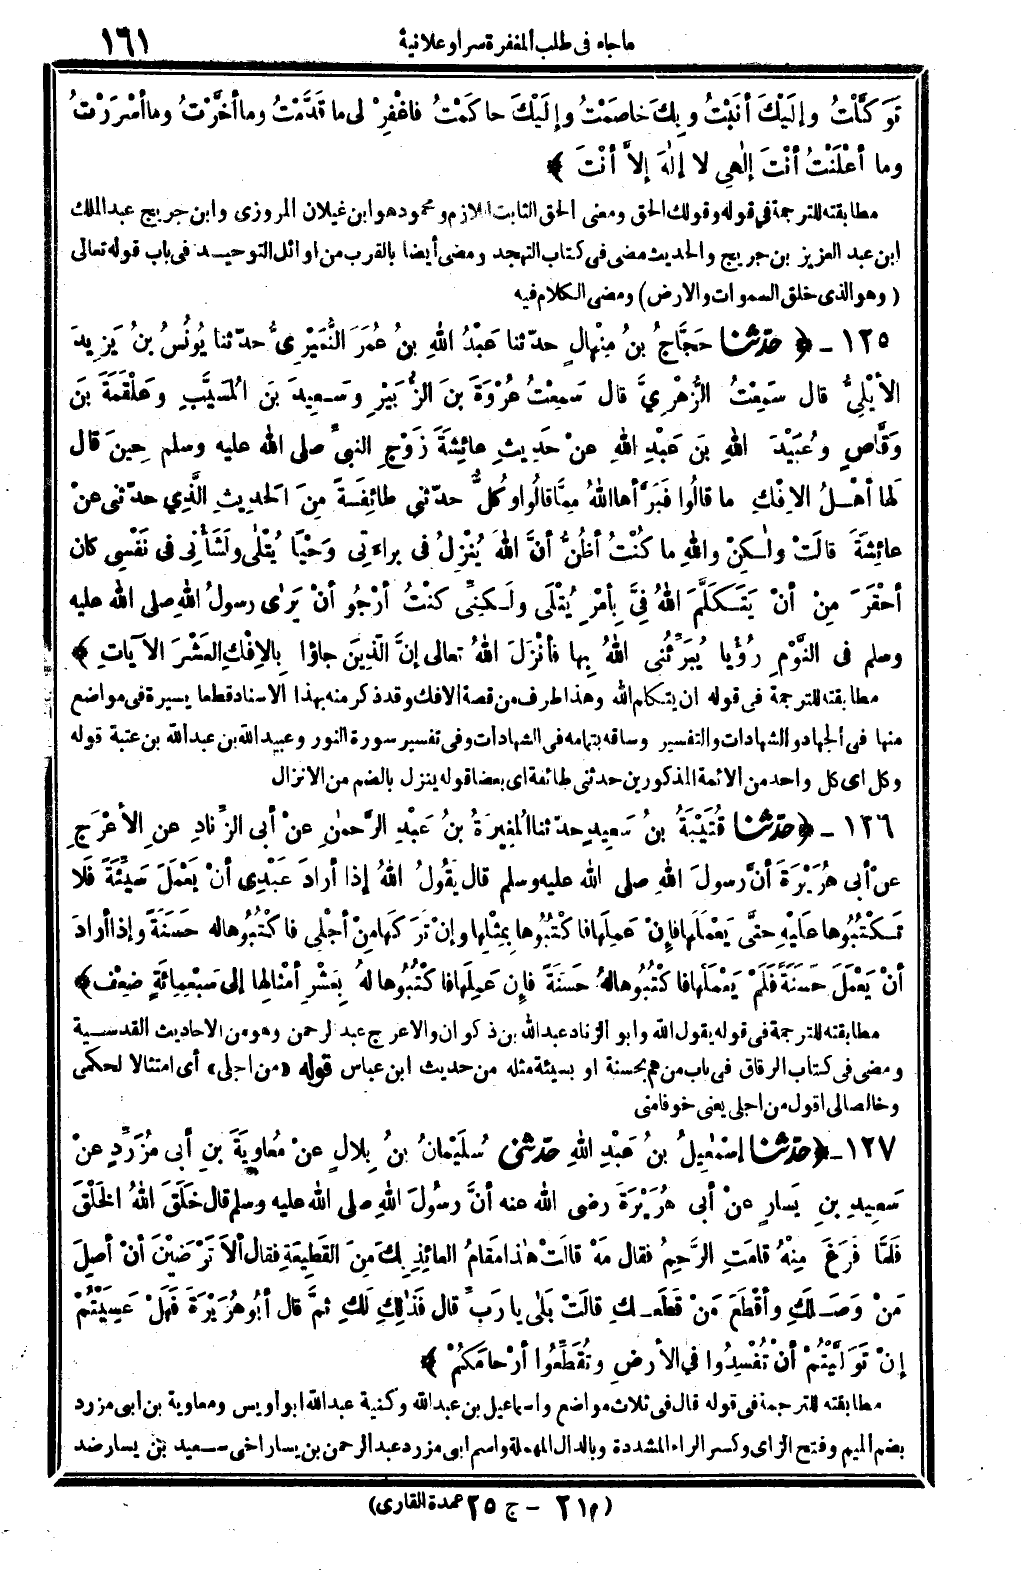 ما جاء في طلب المغفرة سرا وعلانية
١٦١
تَوَكَّلْتُ وإلَيْكَ أنَبْتُ وبِكَ خاصَمْتُ وإلَيْكَ حاكَمْتُ فاغْفِرْ لِى ما قَدَّمْتُ وما أخَّرْتُ وما أسْرَرْتُ
وما أعْلَنْتُ أنْتَ إلٰهِي لا إلٰهَ إلاَّ أنْتَ ﴾
مطابقته للترجمة فى قوله وقولك الحق ومعنى الحق الثابت اللازم ومحمود هو ابن غيلان المروزى وابن جريج عبد الملك
ابن عبد العزيز بن جريج والحديث مضى فى كتاب التهجد ومضى أيضا بالقرب من اوائل التوحيد فى باب قوله تعالى
( وهو الذى خلق السموات والارض ) ومضى الكلام فيه
١٢٥ - ﴿ حدّثنا حَجَّاجُ بنُ مِنْهالٍ حدّثنا عَبْدُ اللهِ بنُ عُمَرَ النُّمَيْرِىُّ حدّثنا يُونُسُ بنُ يَزِيدَ
الأيْلِيُّ قال سَمِعْتُ الزُّهْرِيَّ قال سَمِعْتُ عُرْوَةَ بنَ الزُّبَيْرِ وسَعِيدَ بنَ المُسَيَّبِ وعَلْقَمَةَ بنَ
وَقَّاصٍ وعُبَيْدَ اللهِ بنَ عَبْدِ اللهِ عنْ حَدِيثِ عائِشَةَ زَوْجِ النبيِّ صلى الله عليه وسلم حِينَ قال
لَها أهْلُ الإفْكِ ما قالُوا فَبَرَّأها اللهُ مِمَّا قالُوا وكُلٌّ حدّثني طائِفَةً مِنَ الحَدِيثِ الَّذِي حدّثنى عنْ
عائِشَةَ قالَتْ ولٰكِنْ واللهِ ما كُنْتُ أظُنُّ أنَّ اللهَ يُنْزِلُ فى براءتِى وَحْيًا يُتْلٰى ولَشَأنِى فى نَفْسِى كان
أحْقَرَ مِنْ أنْ يَتَكَلَّمَ اللهُ فِيَّ بِأمْرٍ يُتْلَى ولَكِنِّى كنْتُ أرْجُو أنْ يَرٰى رسولُ اللهِ صلى الله عليه
وسلم فى النَّوْمِ رُؤْيا يُبَرِّئُنى اللهُ بِها فأنْزَلَ اللهُ تعالى إنَّ الّذِينَ جاؤا بِالإفْكِ العَشْرَ الآياتِ ﴾
مطابقته للترجمة فى قوله ان يتكلم الله وهذا طرف من قصة الافك وقد ذكر منه بهذا الاسناد قطعا يسيرة فى مواضع
منها فى الجهاد والشهادات والتفسير وساقه بتمامه فى الشهادات وفى تفسير سورة النور وعبيد الله بن عبد الله بن عتبة قوله
وكل اى كل واحد من الائمة المذكورين حدثنى طائفة اى بعضا قوله ينزل بالضم من الانزال
١٢٦ - ﴿ حدّثنا قُتَيْبَةُ بنُ سَعِيدٍ حدّثنا المُغِيرَةُ بنُ عَبْدِ الرَّحمٰنِ عنْ أبى الزِّنادِ عنِ الأعْرَجِ
عنْ أبى هُرَيْرَةَ أنَّ رسولَ اللهِ صلى الله عليه وسلم قال يقُولُ اللهُ إذا أرادَ عَبْدِى أنْ يَعْمَلَ سَيِّئَةً فَلا
تَكْتُبُوها عَلَيْهِ حتَّى يَعْمَلَها فإنْ عَمِلَها فاكْتُبُوها بِمِثْلِها وإنْ تَرَكَها مِنْ أجْلِى فاكْتُبُوها لهُ حَسَنَةً وإذا أرادَ
أنْ يَعْمَلَ حَسَنَةً فَلَمْ يَعْمَلْها فاكْتُبُوها لهُ حسَنَةً فإن عَمِلَها فاكْتُبُوها لهُ بِعَشْرِ أمْثالِها إلى سَبْعِمائَةٍ ضِعْفٍ ﴾
مطابقته للترجمة فى قوله يقول الله وابو الزناد عبد الله بن ذكوان والاعرج عبد الرحمن وهو من الاحاديث القدسية
ومضى فى كتاب الرقاق فى باب من هم بحسنة او بسيئة مثله من حديث ابن عباس قوله «من اجلى» أى امتثالا لحكمى
وخالصا لى اقول من اجلى يعنى خوفا منى
١٢٧ - ﴿ حدّثنا إسْمٰعِيلُ بنُ عَبْدِ اللهِ حدّثنى سُلَيْمانُ بنُ بِلالٍ عنْ مُعاوِيَةَ بنِ أبى مُزَرِّدٍ عنْ
سَعِيدِ بنِ يَسارٍ عنْ أبى هُرَيْرَةَ رضى الله عنه أنَّ رسُولَ اللهِ صلى الله عليه وسلم قال خَلَقَ اللهُ الخَلْقَ
فَلَمَّا فَرَغَ مِنْهُ قامَتِ الرَّحِمُ فقال مَهْ قالَتْ هٰذا مَقامُ العائِذِ بِكَ مِنَ القَطِيعَةِ فقال ألاَ تَرْضَيْنَ أنْ أصِلَ
مَنْ وَصَلَكِ وأقْطَعَ مَنْ قَطَعَكِ قالَتْ بَلٰى يا رَبِّ قال فَذٰلِكِ لَكِ ثمَّ قال أبُو هُرَيْرَةَ فَهَلْ عَسَيْتُمْ
إنْ تَوَلَّيْتُمْ أنْ تُفْسِدُوا في الأرْضِ وتُقَطِّعُوا أرْحامَكُمْ ﴾
مطابقته للترجمة فى قوله قال فى ثلاث مواضع واسماعيل بن عبد الله وكنية عبد الله ابو أويس ومعاوية بن أبى مزرد
بضم الميم وفتح الزاى وكسر الراء المشددة وبالدال المهملة واسم ابى مزرد عبد الرحمن بن يسار اخى سعيد بن يسار ضد
(م ٢١ - ج ٢٥ عمدة القارى)